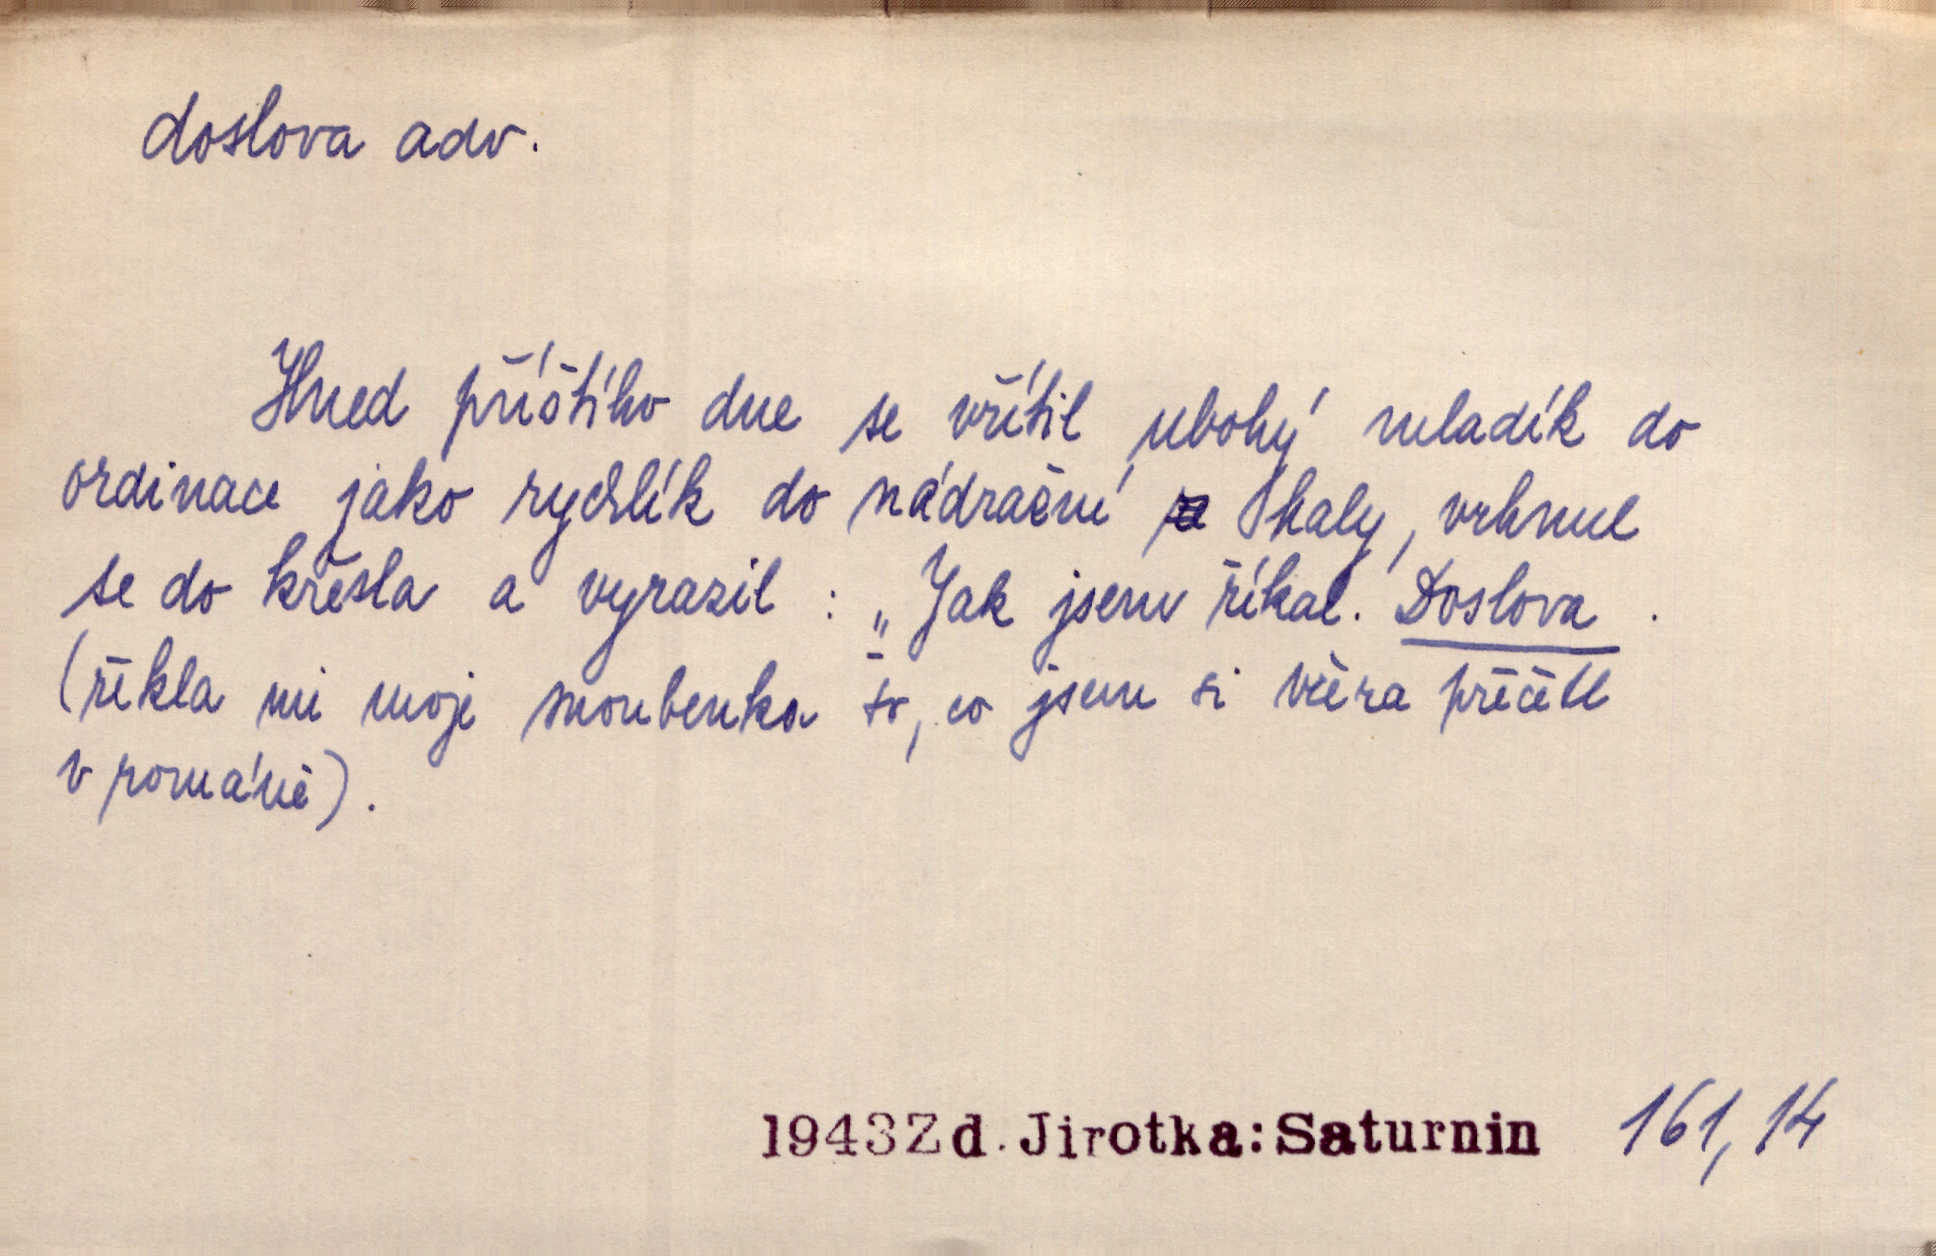 doslova adv.
Hned příštího dne se vřítil ubohý mladík do
ordinace jako rychlík do nádražní haly, vrhnul
se do křesla a vyrazil : „Jak jsem říkal. Doslova .
(řekla mi moje snoubenka to, co jsem si včera přečetl
v románě).
1943 Zd. Jirotka: Saturnin 161,14